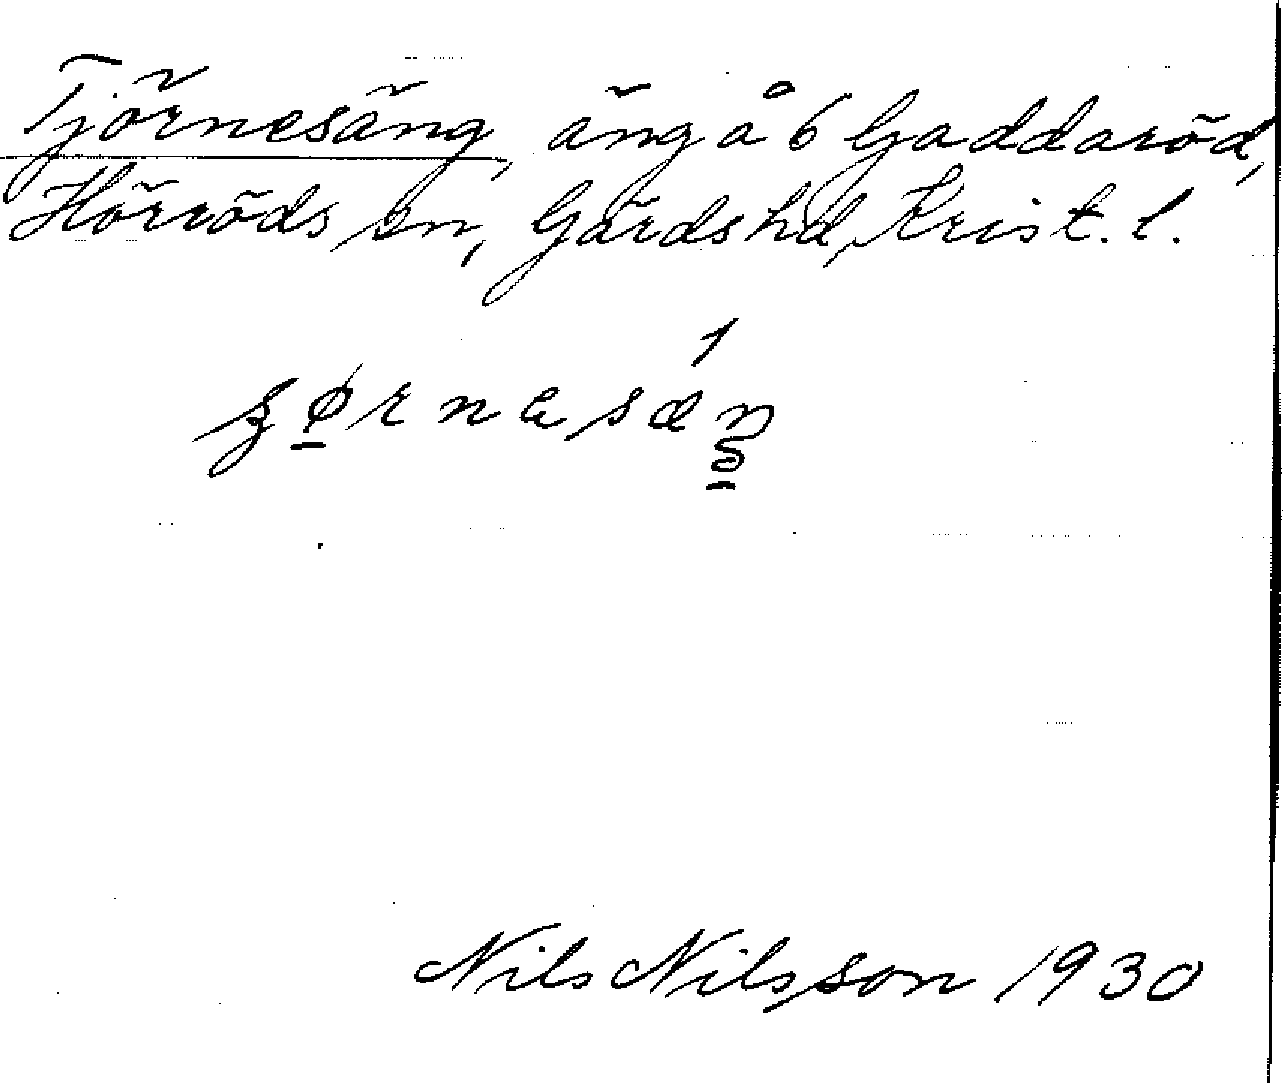 Tjörnesäng, äng å 6 Gaddaröd,
Hörröds sn, Gärds hd, Krist. l.
Nils Nilsson 1930